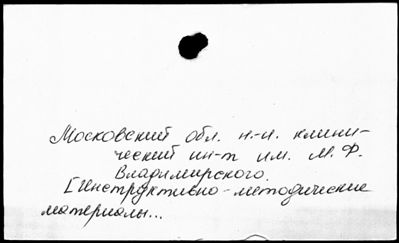 Московский обл. н.-и. клини-
ческий ин-т им. М.Ф.
Владимирского.
[Инструктивно-методические
материалы...